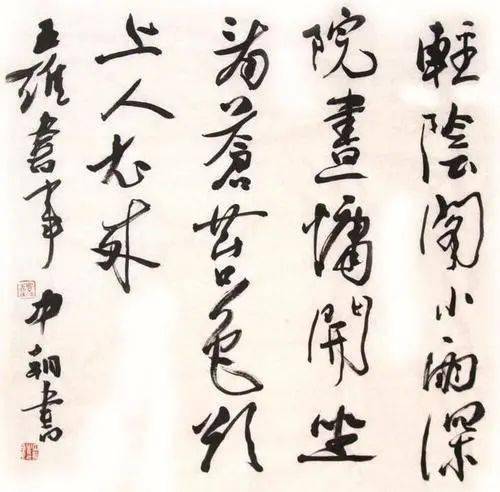 輕陰閣小雨深
院晝慵開坐
看蒼苔色欲
上人衣來
王維書事 中書